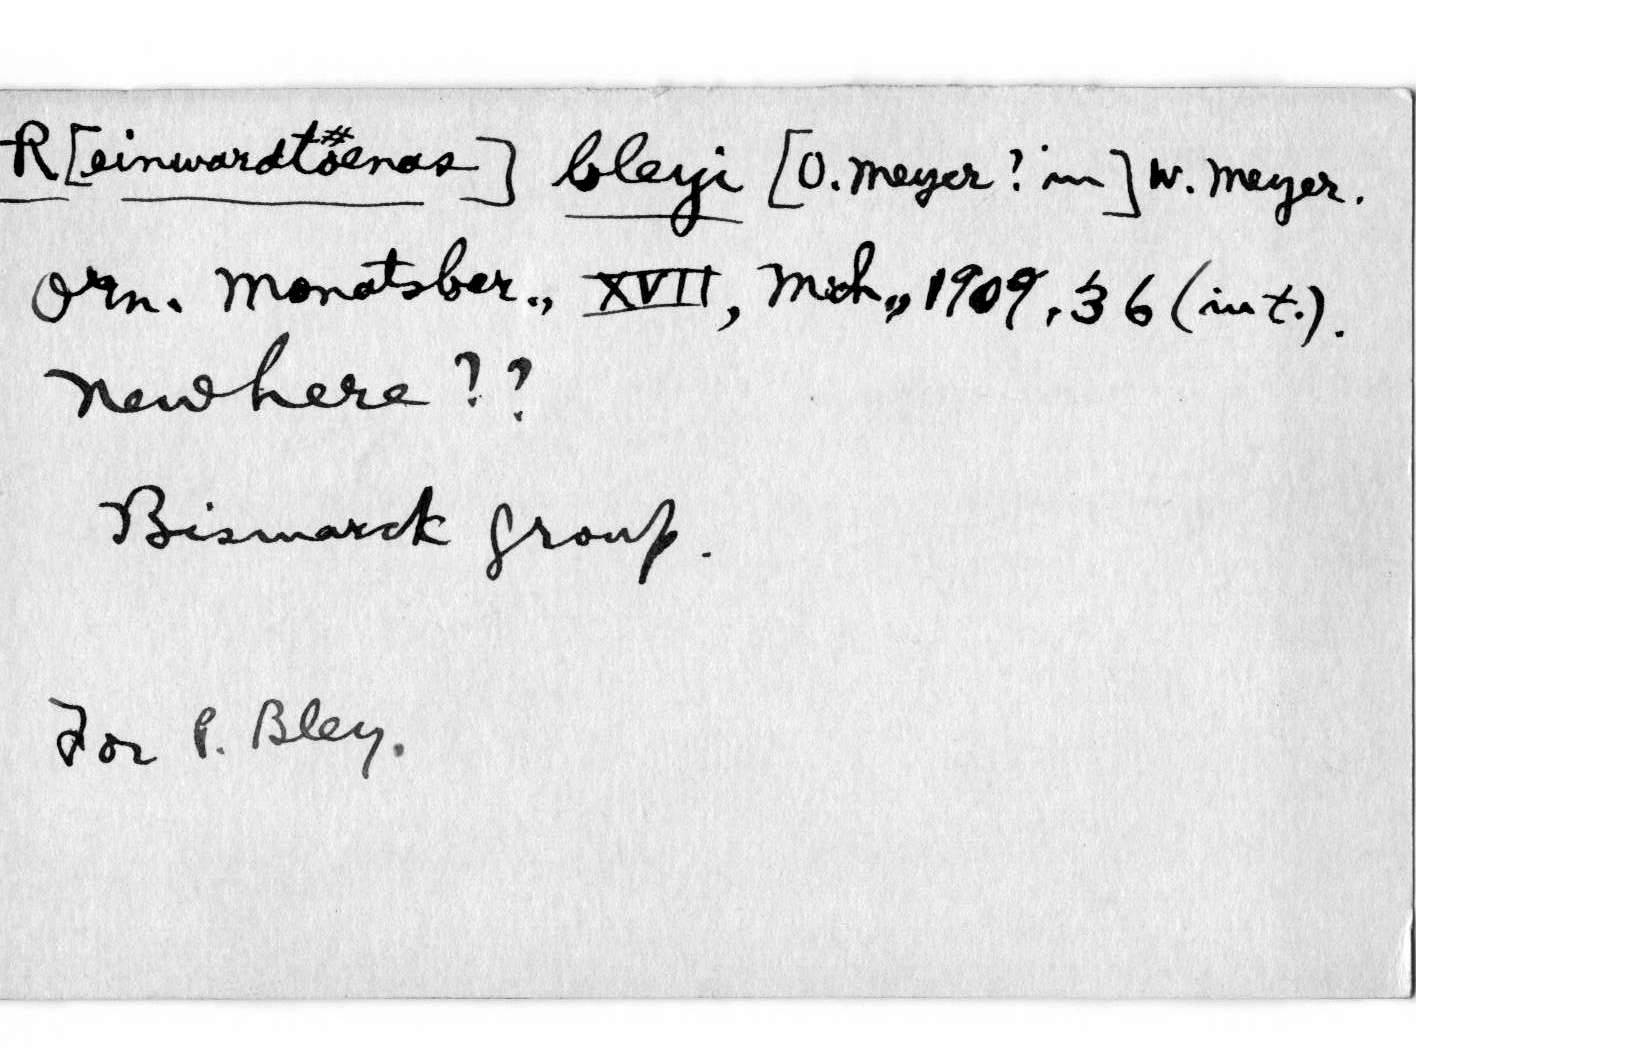 R[einwardtöenas] bleyi [O. Meyer? in] W. Meyer.
Orn. Monatsber., XVII, Mch., 1909, 36 (in t.).
New here??
Bismarck group.
For P. Bley.